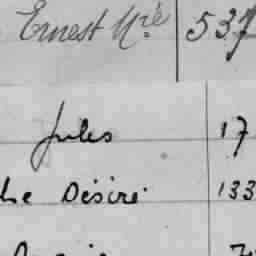 Ernest Mie 537
Jules 17
he Désiré 133